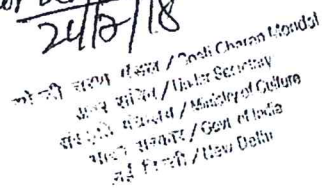 24/2/18
चरण मंडल / Gosti Charan Mondal
अवर सचिव / Under Secretary
संस्कृति मंत्रालय / Ministry of Culture
भारत सरकार / Govt. of India
नई दिल्ली / New Delhi